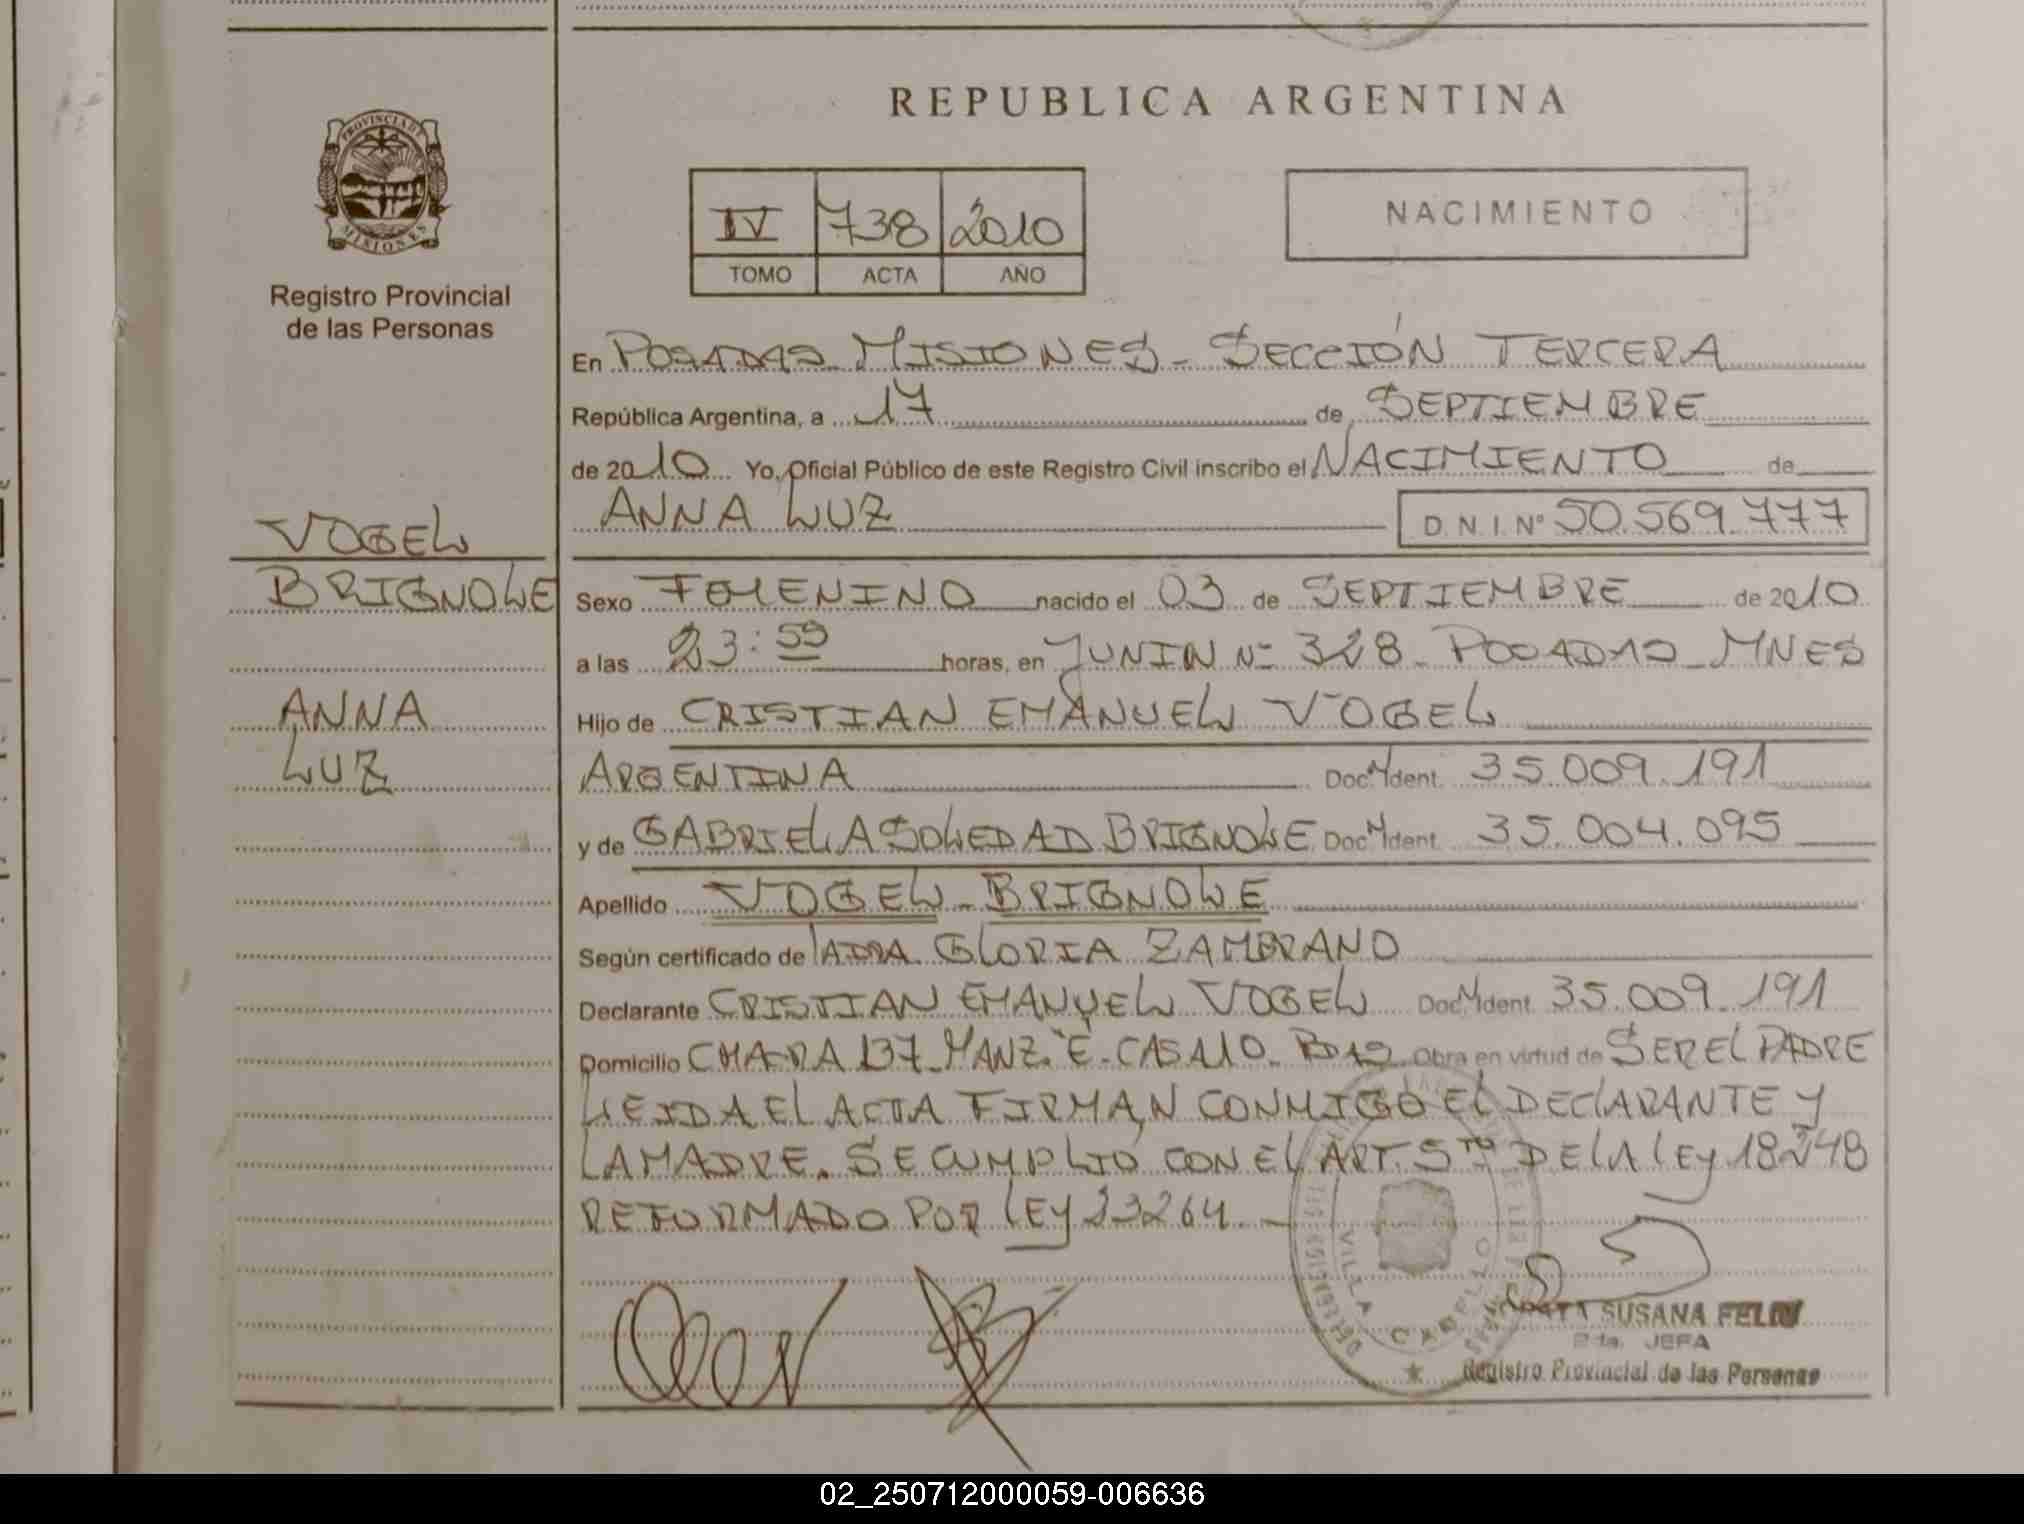 REPUBLICA ARGENTINA
PROVINCIA DE
MISIONES
Registro Provincial
de las Personas
IV 738 2010
TOMO ACTA AÑO
NACIMIENTO
En POSADAS MISIONES - SECCIÓN TERCERA
República Argentina, a 17 de SEPTIEMBRE
de 2010 Yo, Oficial Público de este Registro Civil inscribo el NACIMIENTO de
ANNA LUZ D.N.I. Nº 50.569.777
VOGEL
BRIGNOLE
ANNA
LUZ
Sexo FEMENINO nacido el 03 de SEPTIEMBRE de 2010
a las 23:59 horas, en JUNIN Nº 328 POSADAS MNES
Hijo de CRISTIAN EMANUEL VOGEL
ARGENTINA Doc. Ident. 35.009.191
y de GABRIELA SOLEDAD BRIGNOLE Doc. Ident. 35.004.095
Apellido VOGEL - BRIGNOLE
Según certificado de GLORIA ZAMBRANO
Declarante CRISTIAN EMANUEL VOGEL Doc. Ident. 35.009.191
Domicilio CHACRA 137 MANZ. "E" - CASA 10 - PDAS Obra en virtud de SER EL PADRE
LEIDA EL ACTA FIRMAN CONMIGO EL DECLARANTE Y
LA MADRE. SE CUMPLIÓ CON EL ART. 5to DE LA LEY 18248
REFORMADO POR LEY 23264.
VILLA CABELLO
SUSANA FELIU
JEFA
Registro Provincial de las Personas
02_250712000059-006636